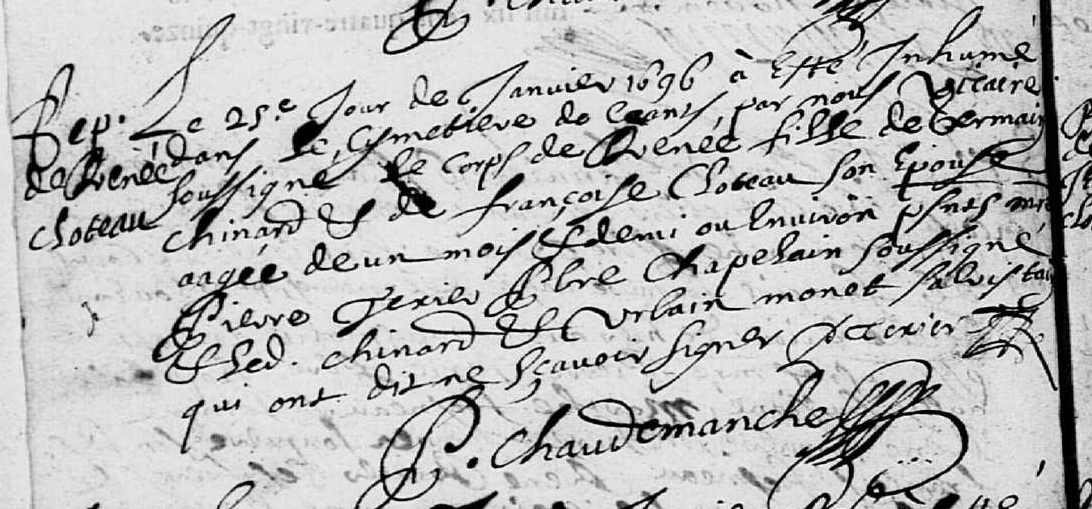 Sep.
de Renée
Choteau
Le 25.e Jour de Janvier 1696 à Esté Inhumé
dans le Cymetiere de Ceans, par nous Viccaire
soussigné le corps de Renée fille de Germain
chinard & de françoise Choteau son Epouse
aagée de un mois & demi ou Environ psnts
Pierre Perier Pbre Chapelain soussigné
& led. chinard & Urbain monet
qui ont dit ne sçavoir signer
P. Chaudemanche